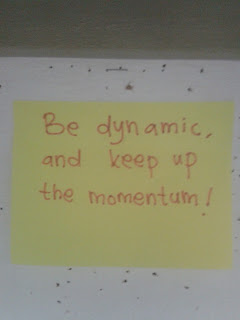 Be dynamic,
and keep up
the momentum!